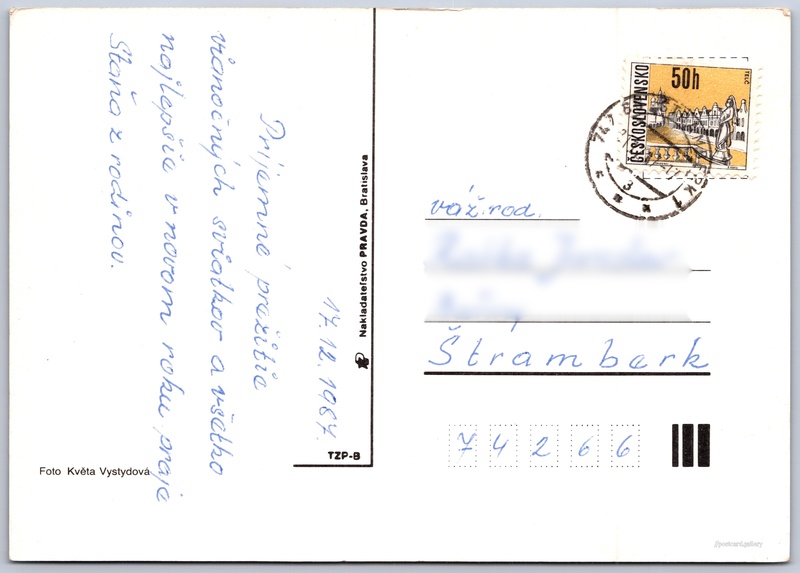 17.12.1987.
Príjemné prežitie
vianočných sviatkov a všetko
najlepšie v novom roku praje
Staňa z rodinov.
Foto Květa Vystydová
Nakladateľstvo PRAVDA, Bratislava
TZP-B
ČESKOSLOVENSKO
50h
TELČ
váž. rod.
Štramberk
74266
//postcard.gallery